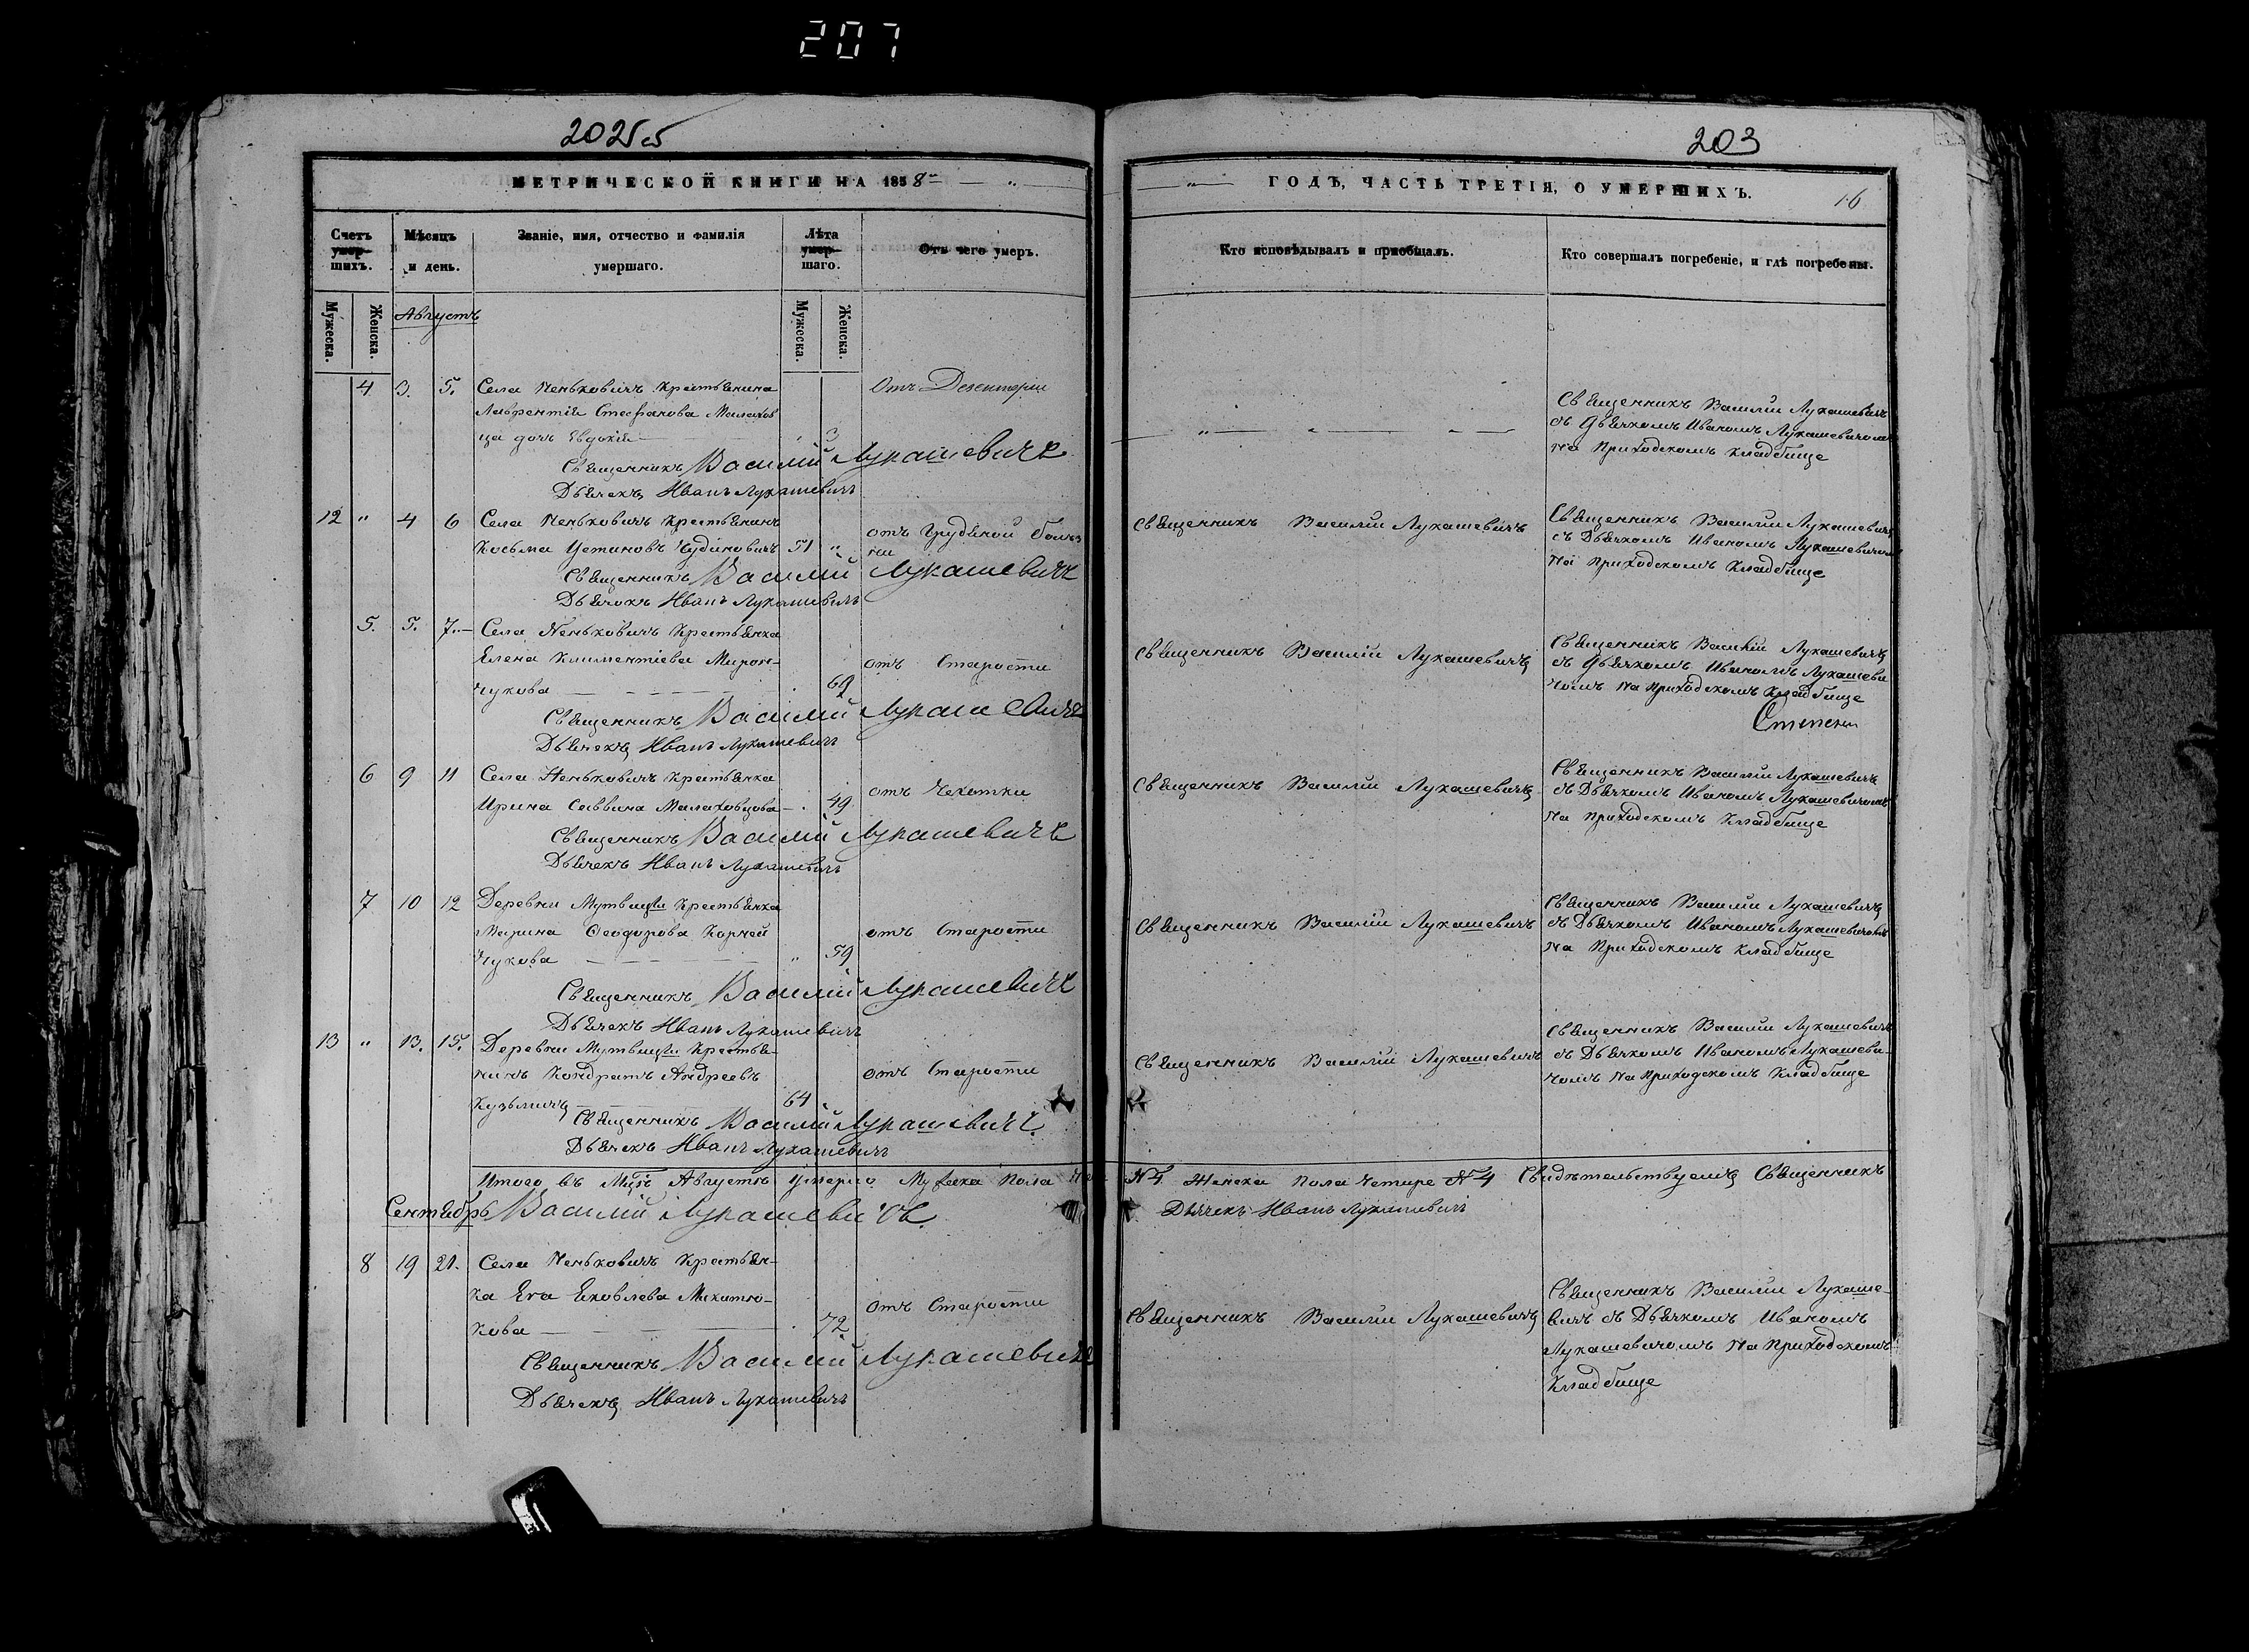 207
202об
203
МЕТРИЧЕСКОЙ КНИГИ НА 1858
ГОДЪ, ЧАСТЬ ТРЕТІЯ, О УМЕРШИХЪ.
16
Счетъ умер-шихъ.
Мѣсяцъ и день.
Званіе, имя, отчество и фамилія умершаго.
Лѣта умер-шаго.
Отъ чего умеръ.
Кто исповѣдывалъ и пріобщалъ.
Кто совершалъ погребеніе, и гдѣ погребены.
Мужеска.
Женска.
Августъ
Мужеска.
Женска.
4 3. 5. Села Пеньковичъ Крестьянина
Лаврентія Стефанова Малахов
ца дочь Евдокія 3
Отъ Дезентеріи
Священникъ Василій Лукашевичъ
съ Дьячкомъ Иваномъ Лукашевичомъ
на Приходскомъ Кладбище
Священникъ Василій Лукашевичъ
Дьячекъ Иванъ Лукашевичъ
12 " 4 6 Села Пеньковичъ Крестьянинъ
Косьма Устиновъ Чудиновичъ 51 "
отъ Грудной болѣз
ни
Священникъ Василій Лукашевичъ
Священникъ Василій Лукашевичъ
съ Дьячкомъ Иваномъ Лукашевичомъ
на приходскомъ Кладбище
Священникъ Василій Лукашевичъ
Дьячокъ Иванъ Лукашевичъ
5. 5. 7. Села Пеньковичъ Крестьянка
Елена Климентіева Мирон-
чукова 69
отъ Старости
Священникъ Василій Лукашевичъ
Священникъ Василій Лукашевичъ
съ Дьячкомъ Иваномъ Лукашеви
чомъ на Приходскомъ Кладбище
Священникъ Василій Лукашевичъ
Дьячекъ Иванъ Лукашевичъ
6 9 11 Села Пеньковичъ Крестьянка
Ирина Саввина Малаховцова 49
отъ Чехотки
Священникъ Василій Лукашевичъ
Священникъ Василій Лукашевичъ
съ Дьячкомъ Иваномъ Лукашевичомъ
на Приходскомъ Кладбище
Священникъ Василій Лукашевичъ
Дьячекъ Иванъ Лукашевичъ
7 10 12 Деревни Мутвицы Крестьянка
Марина Ѳеодорова Корней
чукова " 59
отъ Старости
Священникъ Василій Лукашевичъ
Священникъ Василій Лукашевичъ
съ Дьячкомъ Иваномъ Лукашевичомъ
на Приходскомъ Кладбище
Священникъ Василій Лукашевичъ
Дьячекъ Иванъ Лукашевичъ
13 " 13. 15. Деревни Мутвицы Крестья-
нинъ Кондратъ Андреевъ
Кузьмичъ 64
отъ Старости
Священникъ Василій Лукашевичъ
Священникъ Василій Лукашевичъ
съ Дьячкомъ Иваномъ Лукашеви-
чомъ на Приходскомъ Кладбище
Священникъ Василій Лукашевичъ
Дьячекъ Иванъ Лукашевичъ
Итого въ Августѣ умерло Мужеска Пола
Женска Пола четыре № 4 Свидѣтельствуемъ Священникъ
Сентябрь
Василій Лукашевичъ
Дьячекъ Иванъ Лукашевичъ
8 19 21. Села Пеньковичъ Крестьян-
ка Ева Яковлева Микитю-
кова 72
отъ Старости
Священникъ Василій Лукашевичъ
Священникъ Василій Лукаше-
вичъ съ Дьячкомъ Иваномъ
Лукашевичомъ на Приходскомъ
Кладбище
Священникъ Василій Лукашевичъ
Дьячекъ Иванъ Лукашевичъ